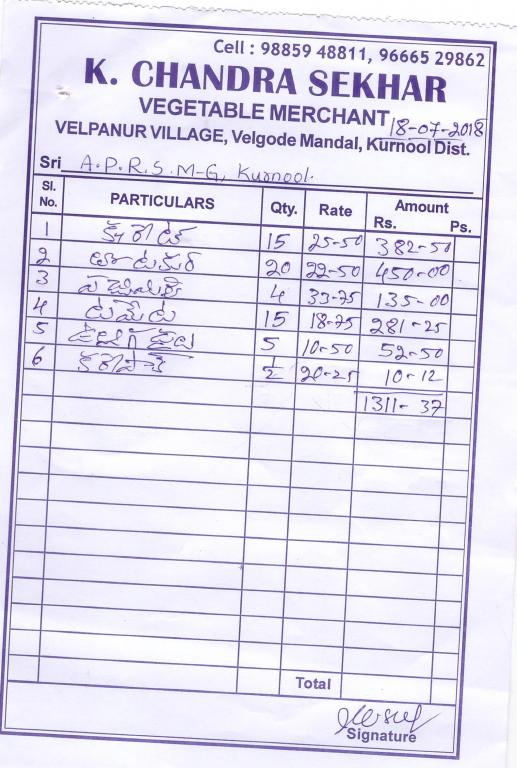 Cell : 98859 48811, 96665 29862
K. CHANDRA SEKHAR
VEGETABLE MERCHANT 18-07-2018
VELPANUR VILLAGE, Velgode Mandal, Kurnool Dist.
Sri A.P.R.S.M-G, Kurnool.
Sl. No. PARTICULARS Qty. Rate Amount Rs. Ps.
1 క్యారెట్ 15 25-50 382-50
2 20 22-50 450-00
3 పచ్చిమిర్చి 4 33-75 135-00
4 టమేట 15 18-75 281-25
5 ఉల్లిగడ్డలు 5 10-50 52-50
6 కరేపాకు ½ 20-25 10-12
1311-37
Total
Signature